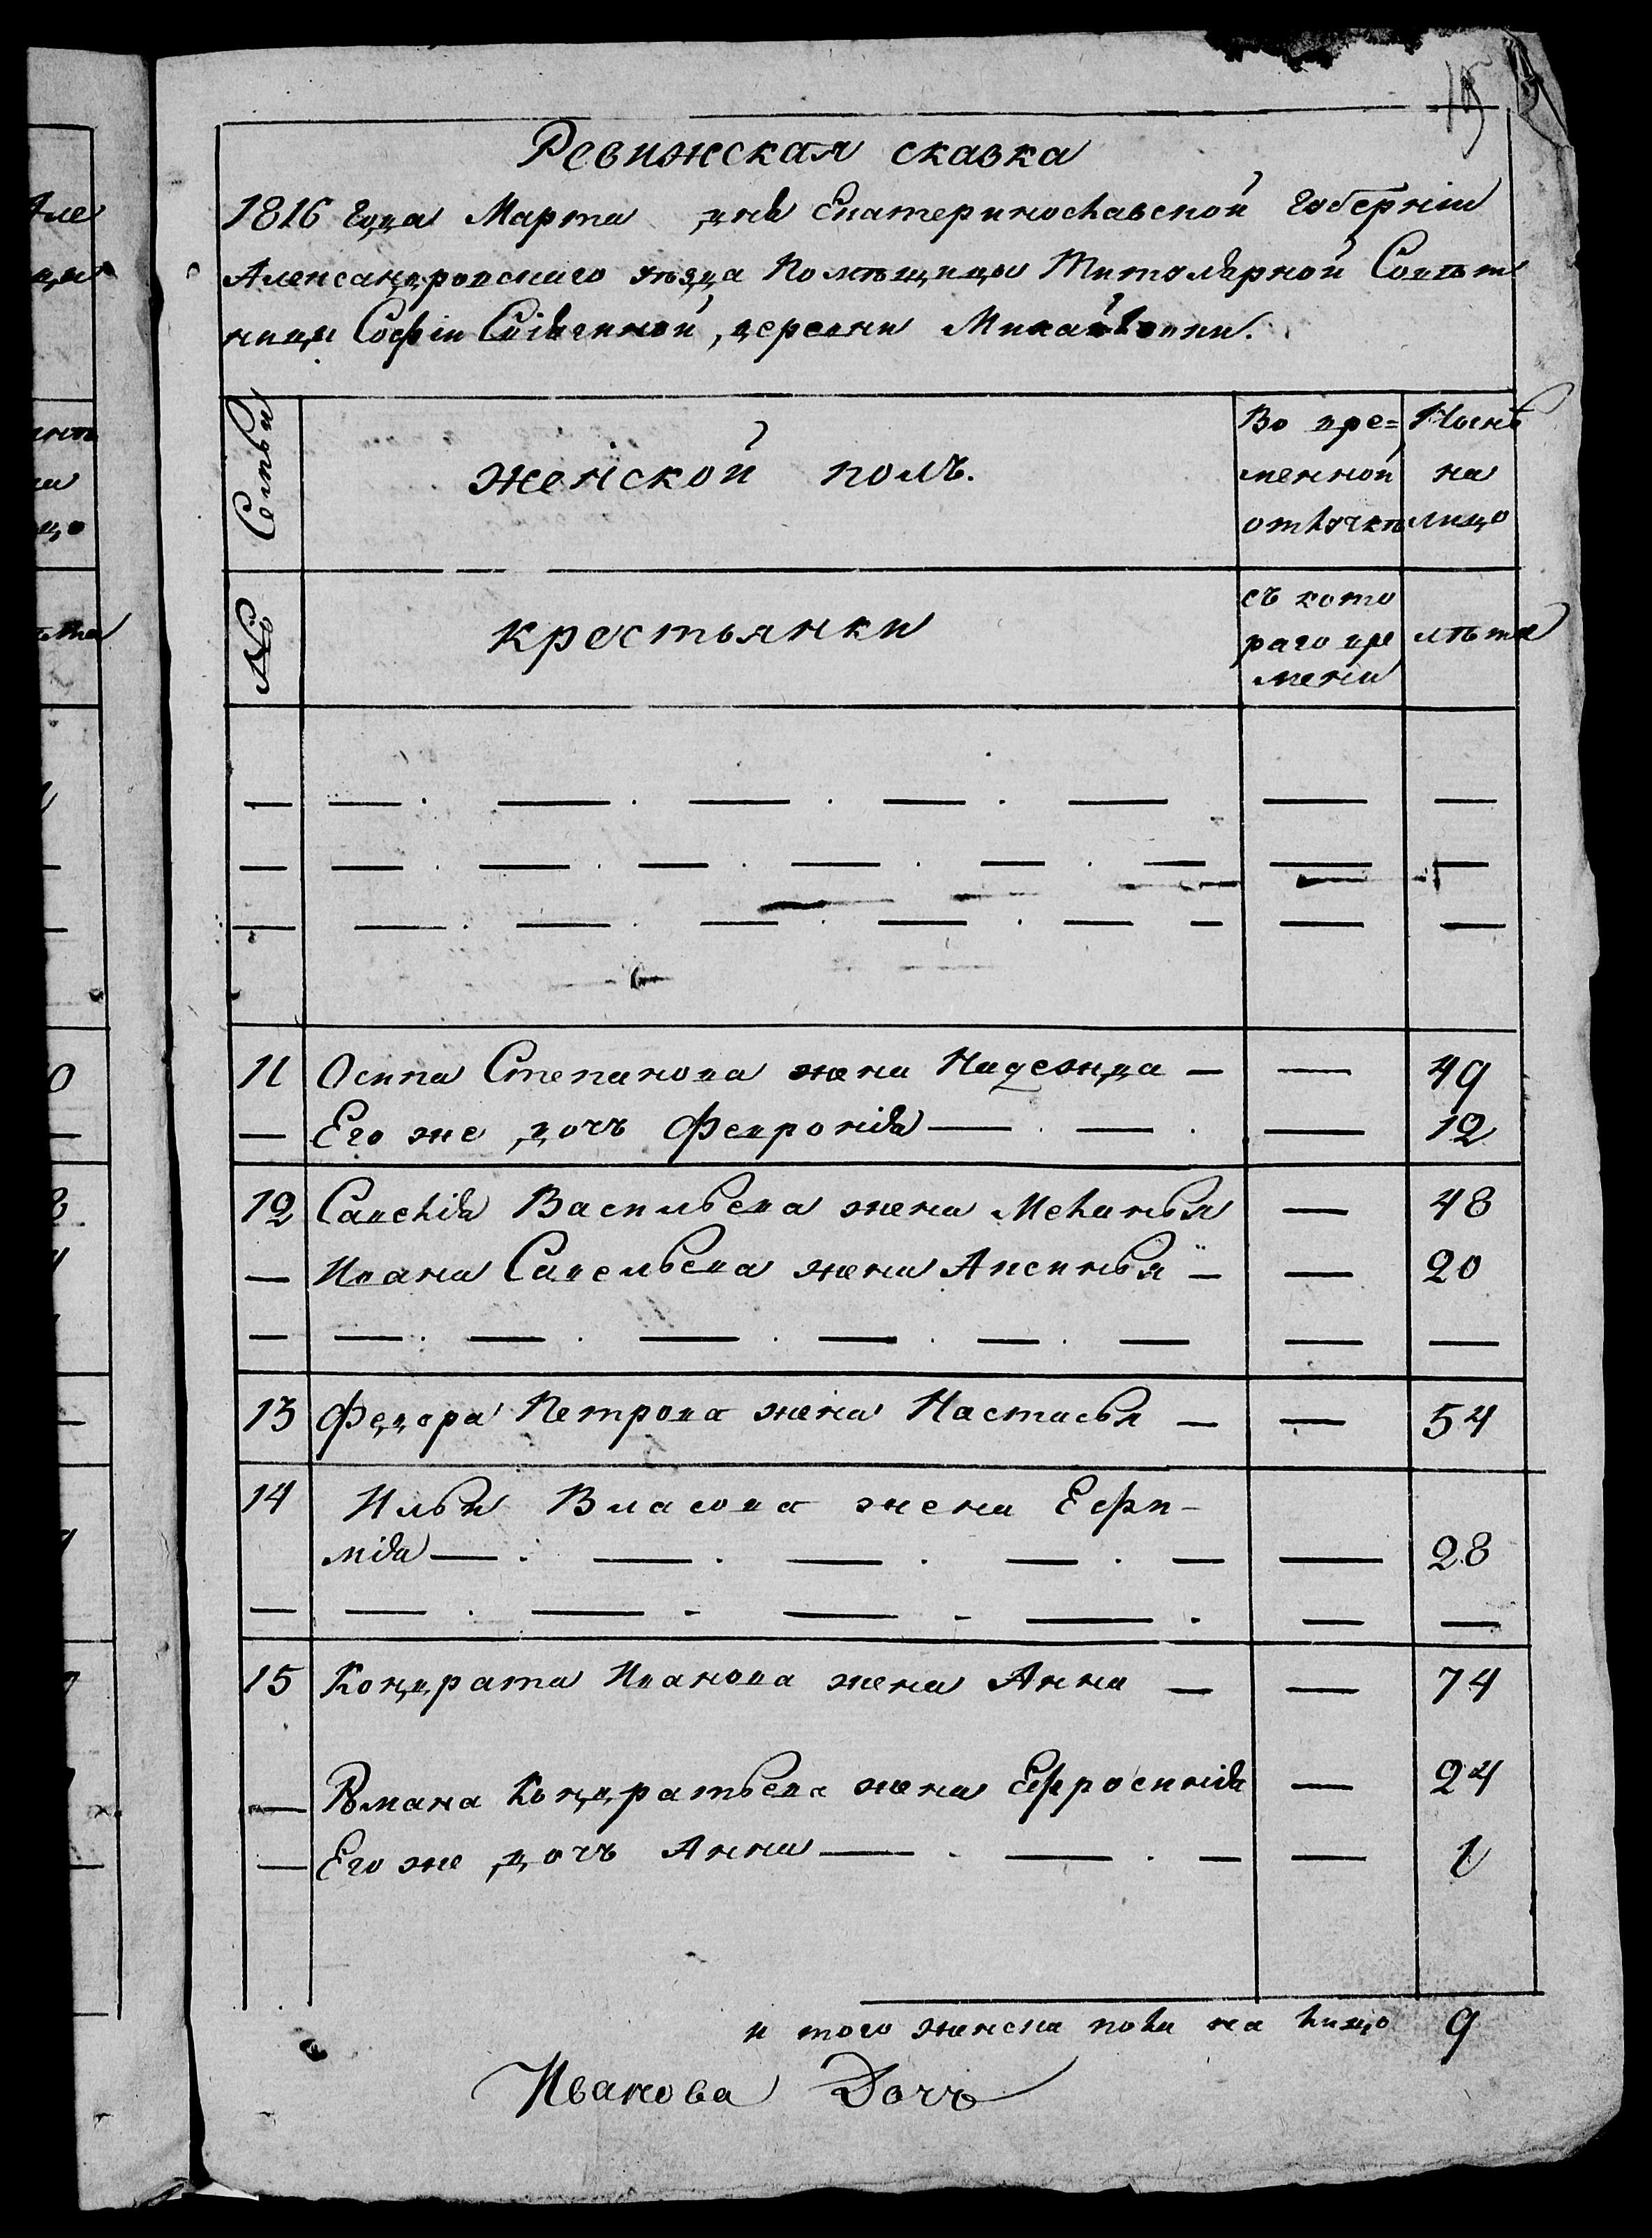 15
Ревижская сказка
1816 года Марта дня Екатеринославской губернии
Александровскаго уѣзда Помѣщицы Титулярной Совѣт
ницы Софiи, деревни Михайловки.
Семьи
женской полъ.
Во вре=
менной
отлучкѣ
Нынѣ
на
лицо
№
крестьянки
съ кото
раго вре
мени
лѣта
11 Осипа Степанова жена Надежда — — 49
— Его же дочь Феврония — — . — 12
12 Савелия Васильева жена Меланья — 48
— Ивана Савельева жена Аксинья — — 20
13 Федора Петрова жена Настасья — — 54
14 Ильи Власова жена Ефи-
мiя — . — . — . — . — — 28
15 Кондрата Иванова жена Анна — — 74
— Романа Кондратьева жена Ефросинiя — 24
— Его же дочь Анна — . — . — — 1
и того женска пола на лицо 9
Иванова Дочь